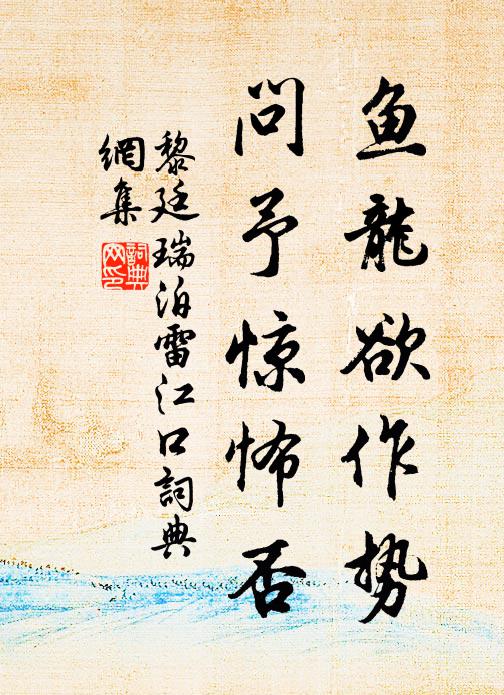 鱼龍欲作势
问予惊怖否
黎廷瑞泊雷江口詞典
網集
詞典
网印